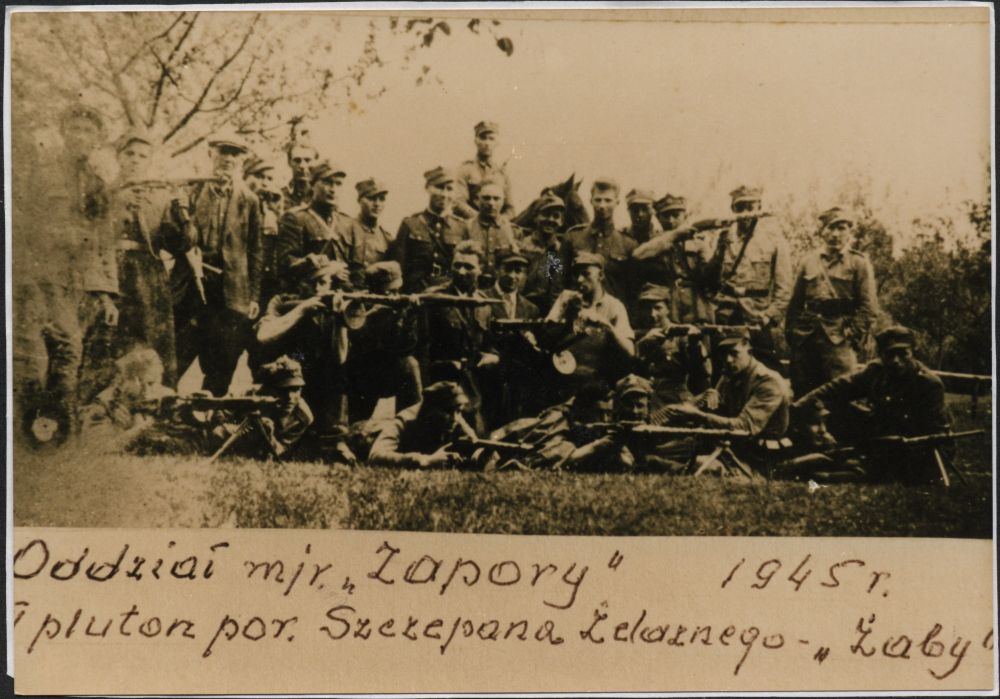 Oddział mjr. „Zapory" 1945 r.
I pluton por. Szczepana Żelaznego - „Żaby"